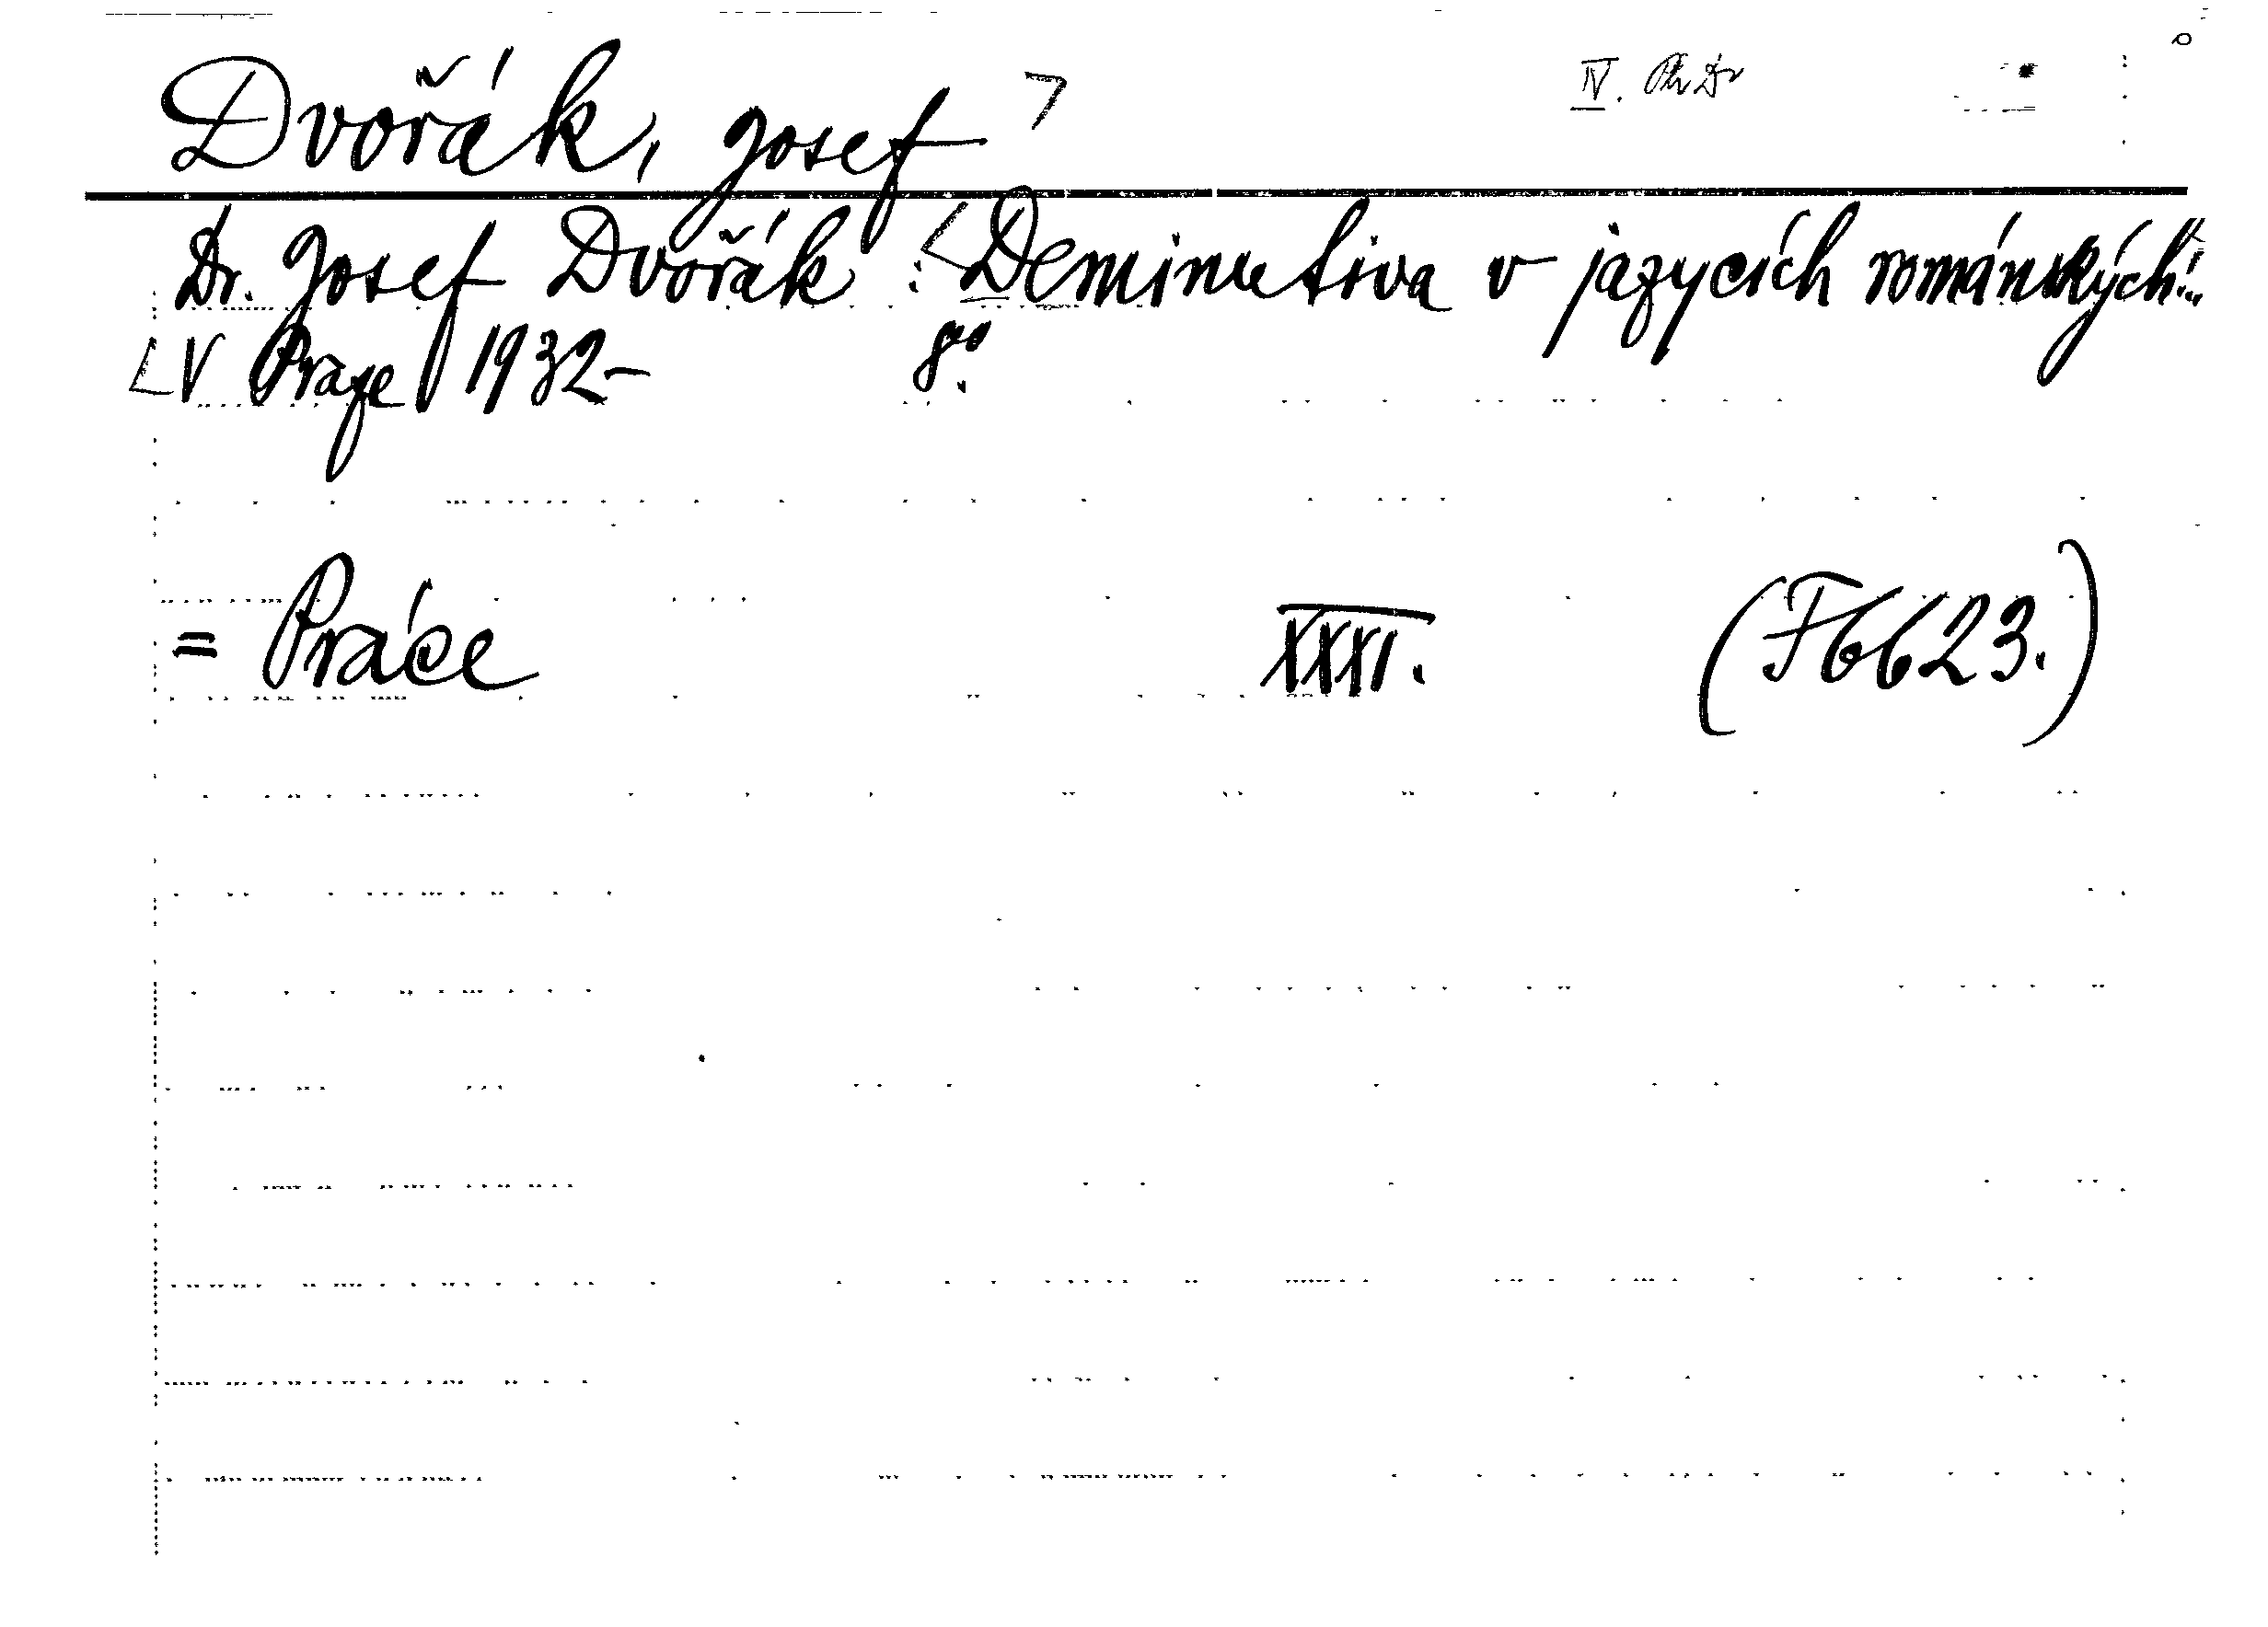 Dvořák, Josef
IV. PhDr
Dr. Josef Dvořák: Deminutiva v jazycích románských.
V Praze 1932- 8°.
= Práce XXXI. (F6623.)